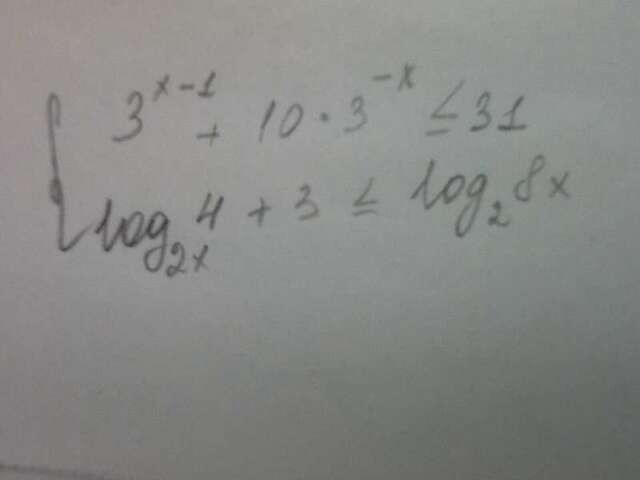 3^{x-1} + 10 · 3^{-x} ≤ 31
log_{2x} 4 + 3 ≤ log_2 8x